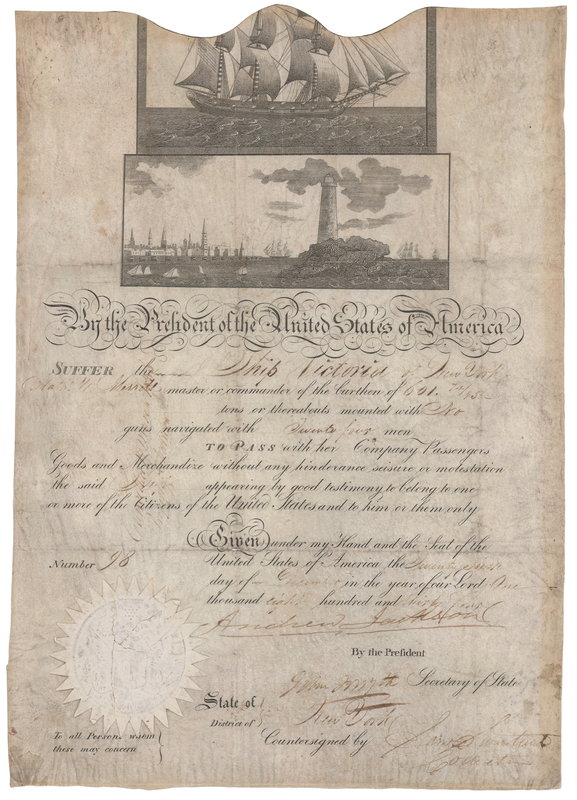 By the President of the United States of America
SUFFER the Ship Victoria of New York
Merrill master or commander of the burthen of 601
tons or thereabouts mounted with No
guns navigated with Twenty four men
TO PASS with her Company Passengers
Goods and Merchandize without any hinderance seisure or molestation
the said Ship appearing by good testimony to belong to one
or more of the Citizens of the United States and to him or them only
Given under my Hand and the Seal of the
Number 98
United States of America the
day of in the year of our Lord One
thousand eight hundred and thirty
Andrew Jackson
By the President
John Forsyth Secretary of State
State of
District of New York
To all Persons whom
these may concern
Countersigned by Sam Swartwout
Collector